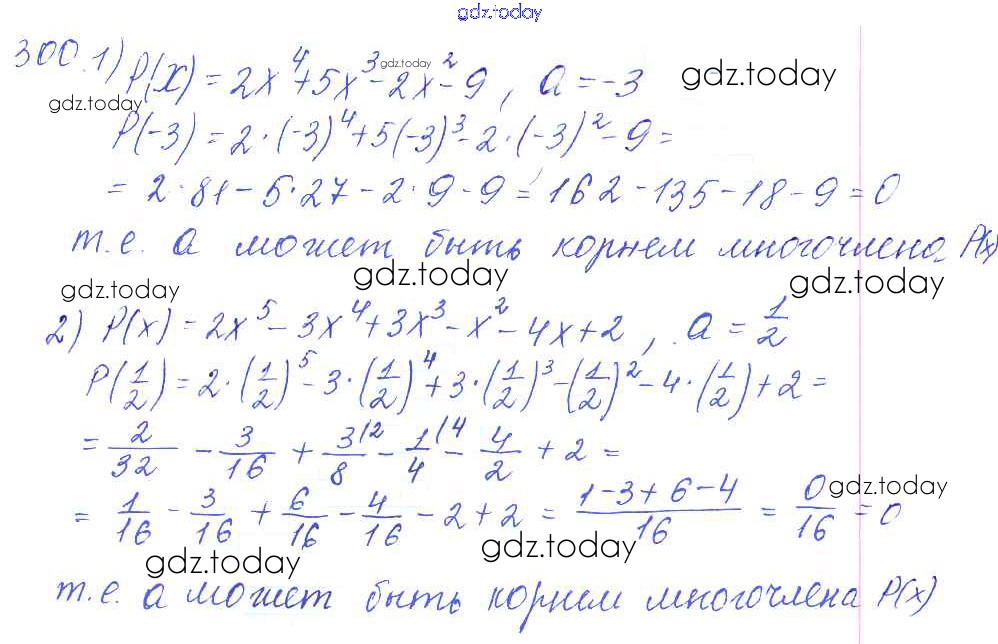 gdz.today
300. 1) P(x) = 2x⁴+5x³-2x²-9, a=-3
gdz.today gdz.today gdz.today
P(-3) = 2·(-3)⁴+5(-3)³-2·(-3)²-9=
= 2·81-5·27-2·9-9=162-135-18-9=0
т.е. а может быть корнем многочлена P(x)
gdz.today gdz.today gdz.today
2) P(x)=2x⁵-3x⁴+3x³-x²-4x+2, a=1/2
P(1/2)=2·(1/2)⁵-3·(1/2)⁴+3·(1/2)³-(1/2)²-4·(1/2)+2=
= 2/32 - 3/16 + 3/8 |2 - 1/4 |4 - 4/2 + 2 =
= 1/16 - 3/16 + 6/16 - 4/16 - 2+2 = (1-3+6-4)/16 = 0/16 = 0
gdz.today
gdz.today gdz.today
т.е. а может быть корнем многочлена P(x)